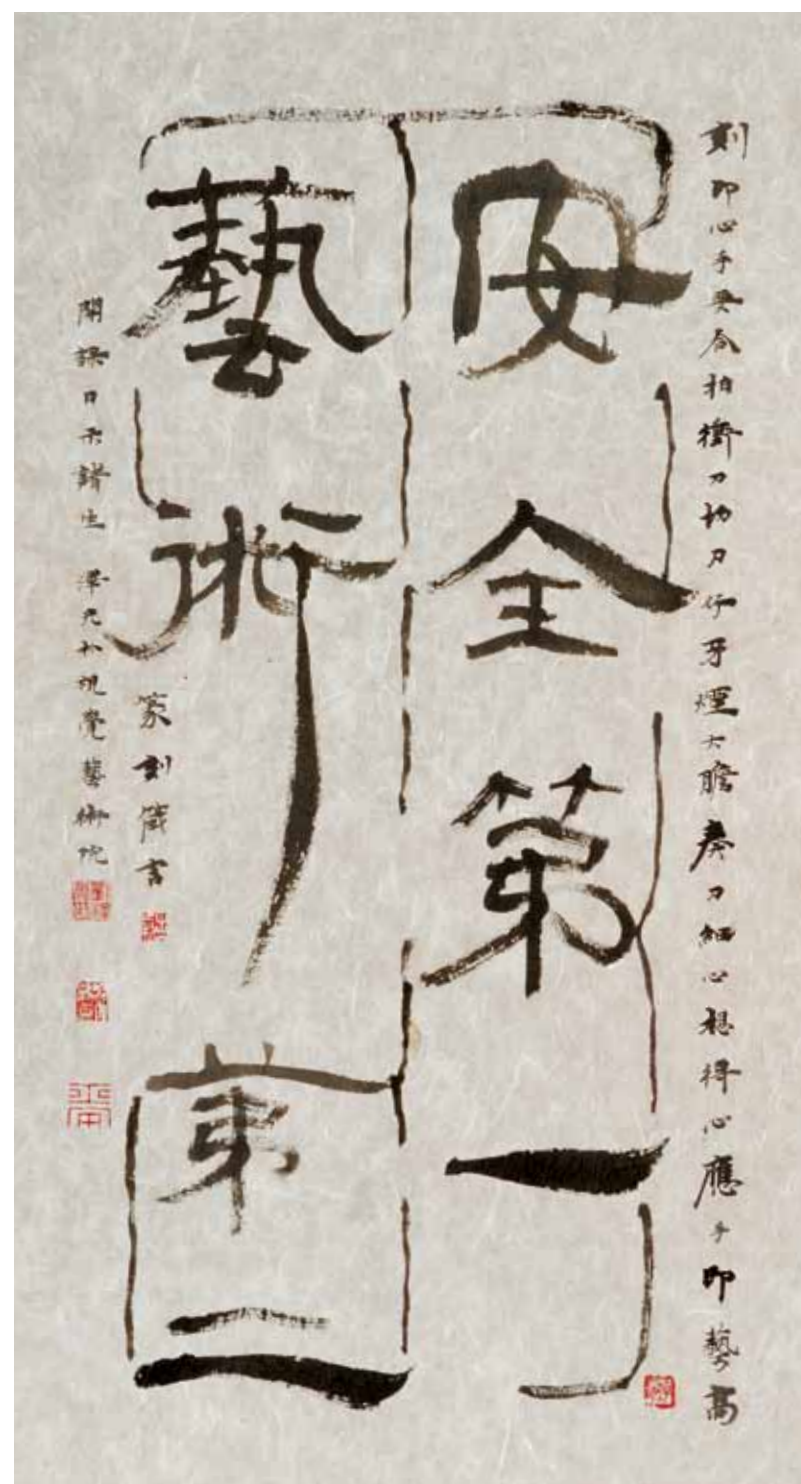 刻印心手要合拍衝刀切刀仔牙煙大膽奏刀細心想得心應手印藝高
安全第一
藝術第二
篆刻箴言
開課日示諸生 澤光於視覺藝術院